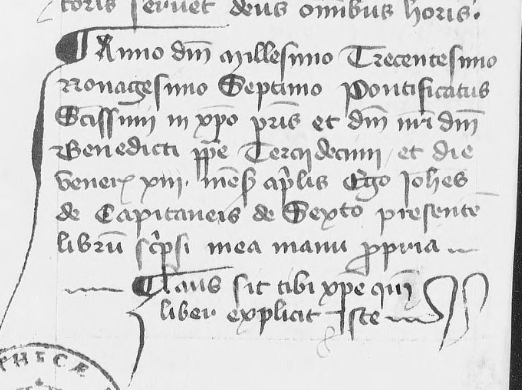 toris servet deus omnibus horis.
Anno dm̄ Millesimo Trecentesimo
Nonagesimo Septimo Pontificatus
Sc̄issimi in xp̄o pr̄is et dm̄ nr̄i dm̄
Benedicti pp̄e Terciidecimi et die
vener̄ xiii. mens̄ ap̄lis Ego Ioh̄es
de Capitaneis de Sexto presente̅
libru̅ sc̄psi mea manu ꝓpria
Laus sit tibi xp̄e qm̄
liber explicit Iste
THECÆ